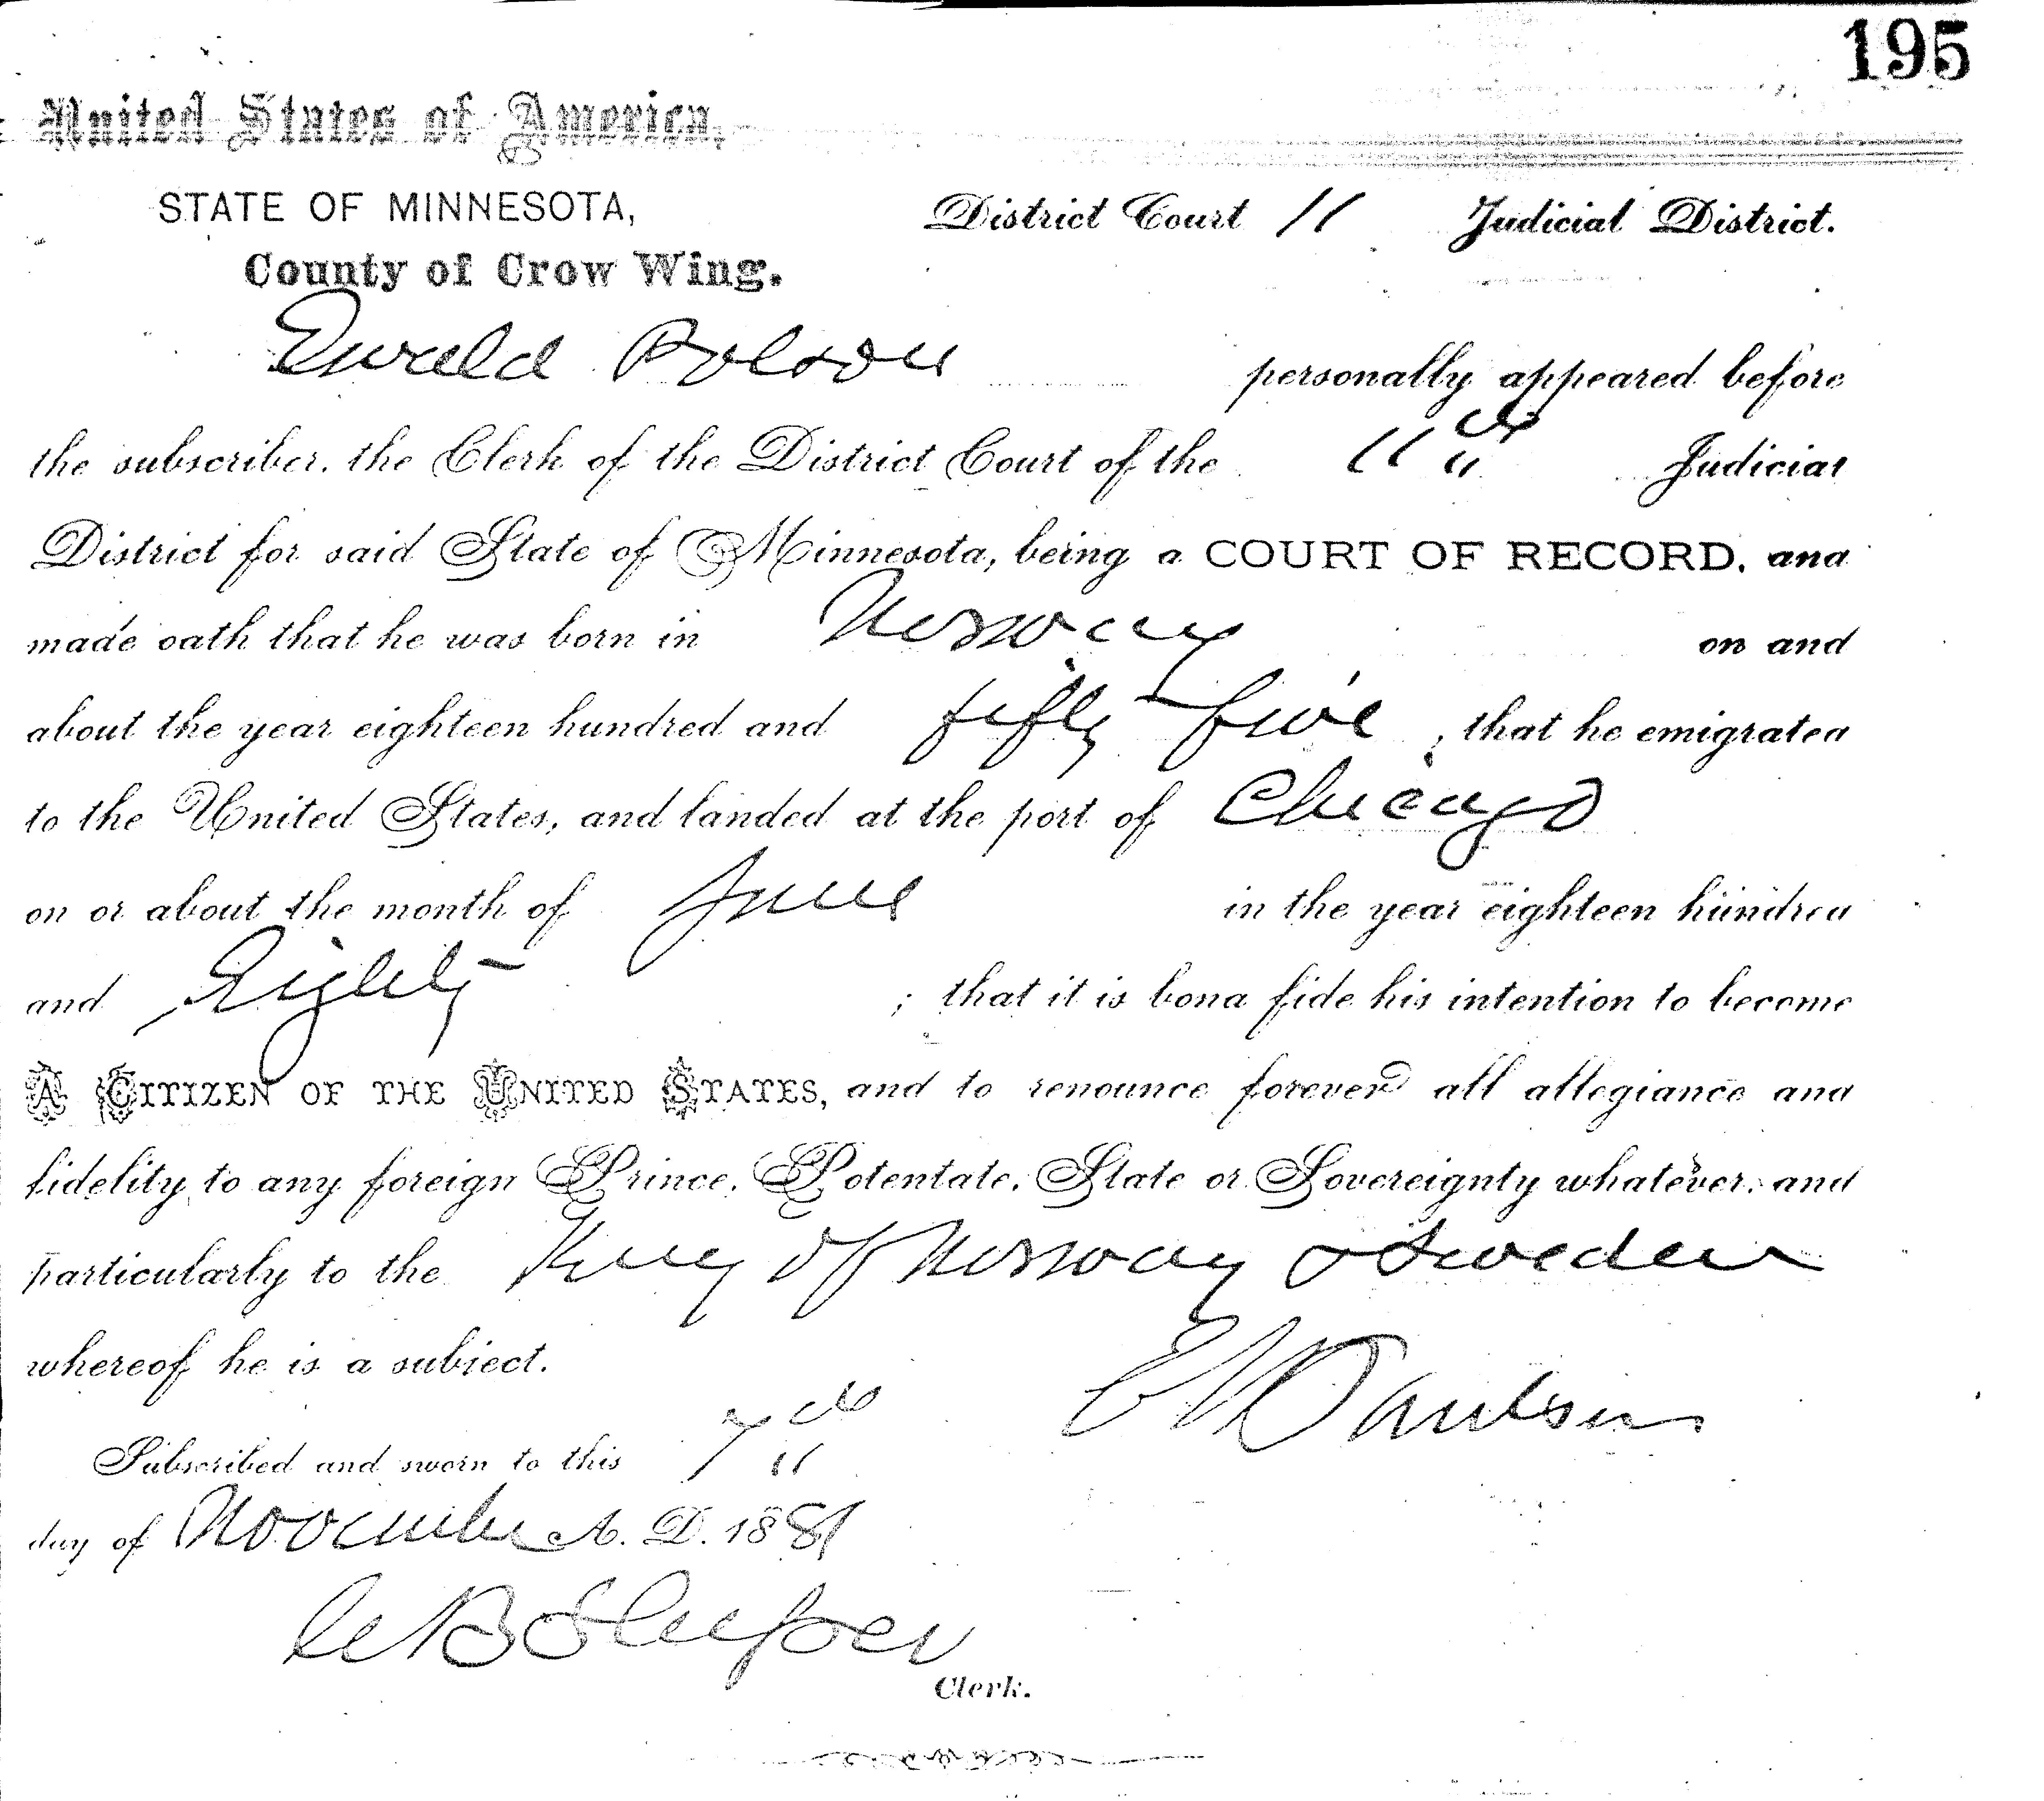 195
United States of America,
STATE OF MINNESOTA, District Court 11 Judicial District.
County of Crow Wing.
Ewald Polson personally appeared before
the subscriber, the Clerk of the District Court of the 11th Judicial
District for said State of Minnesota, being a COURT OF RECORD, and
made oath that he was born in Norway on and
about the year eighteen hundred and fifty five, that he emigrated
to the United States, and landed at the port of Chicago
on or about the month of June in the year eighteen hundred
and Eighty ; that it is bona fide his intention to become
A CITIZEN OF THE UNITED STATES, and to renounce forever all allegiance and
fidelity to any foreign Prince, Potentate, State or Sovereignty whatever, and
particularly to the King of Norway & Sweden
whereof he is a subject.
Subscribed and sworn to this 7th
day of November A. D. 1881
W B Sleeper
Clerk.